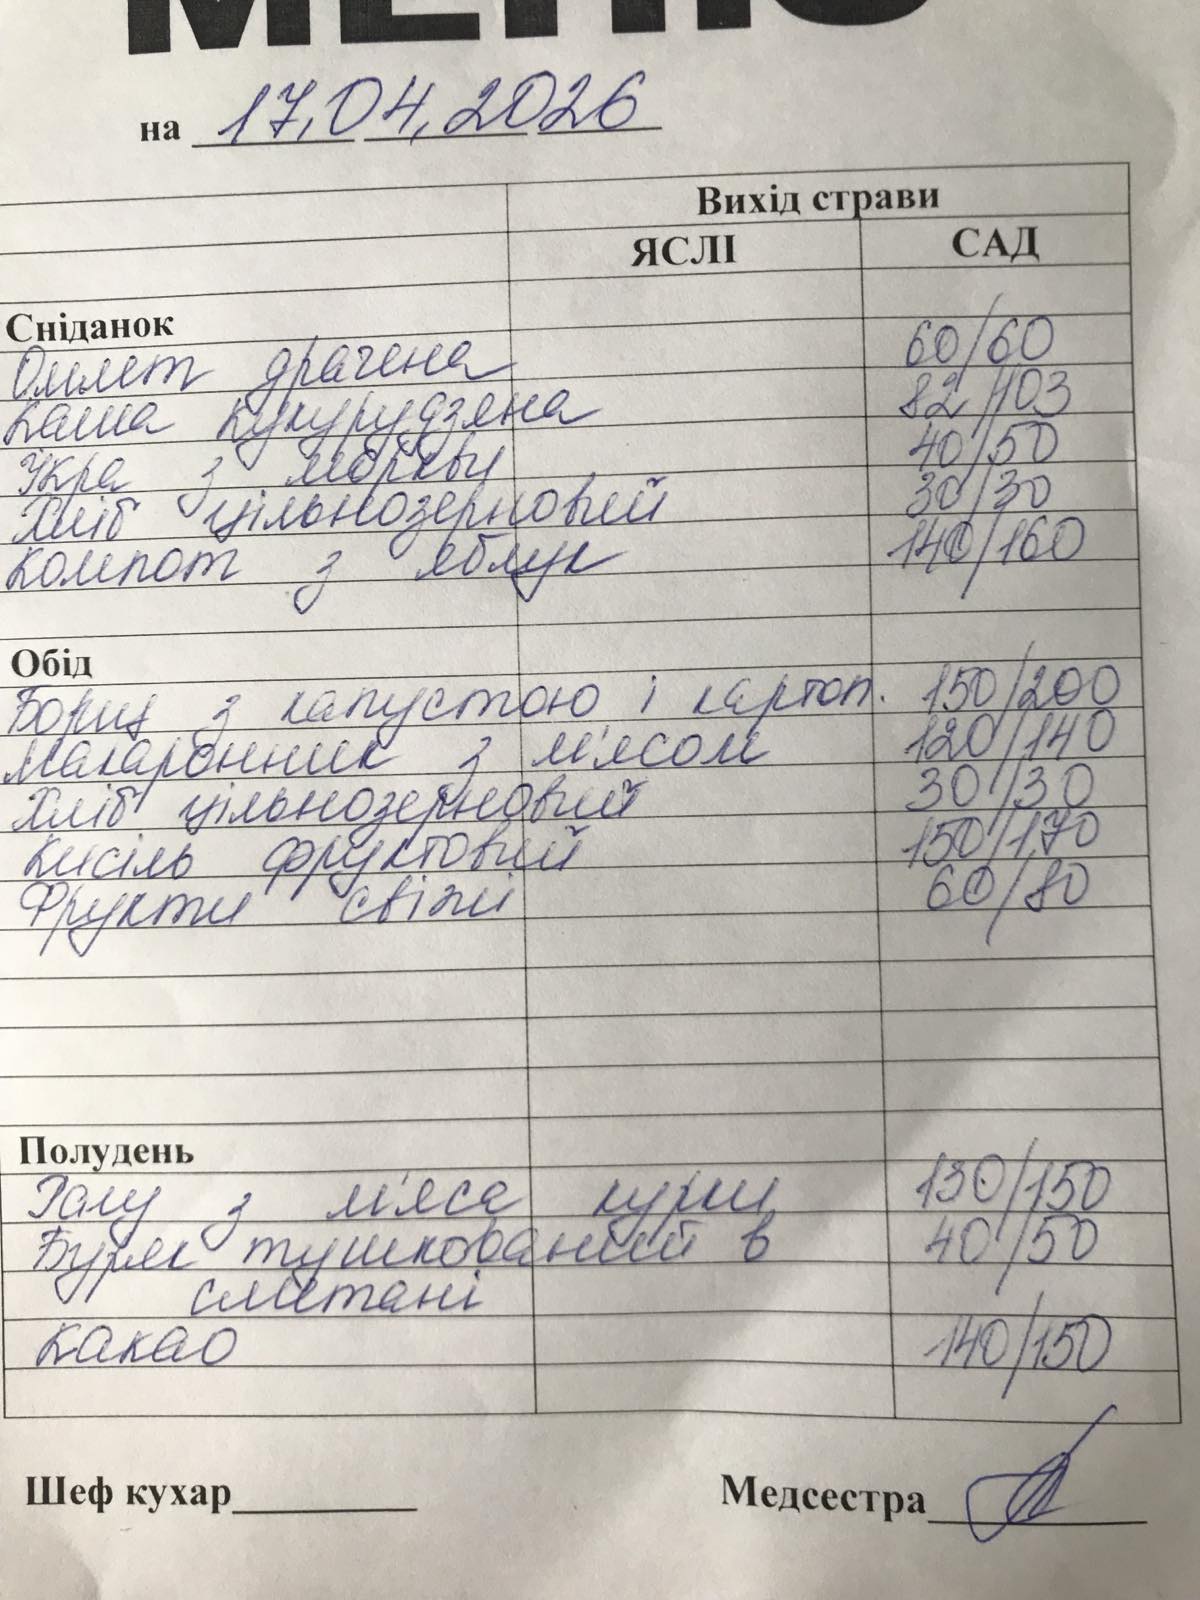 МЕНЮ
на 17.04.2026
Вихід страви
ЯСЛІ САД
Сніданок
Омлет драчена 60/60
Каша кукурудзяна 82/103
Ікра з моркви 40/50
Хліб цільнозерновий 30/30
Компот з яблук 140/160
Обід
Борщ з капустою і картоп. 150/200
Макаронник з м'ясом 120/140
Хліб цільнозерновий 30/30
Кисіль фруктовий 150/170
Фрукти свіжі 60/80
Полудень
Рагу з м'яса курки 130/150
Буряк тушкований в 40/50
сметані
Какао 140/150
Шеф кухар Медсестра